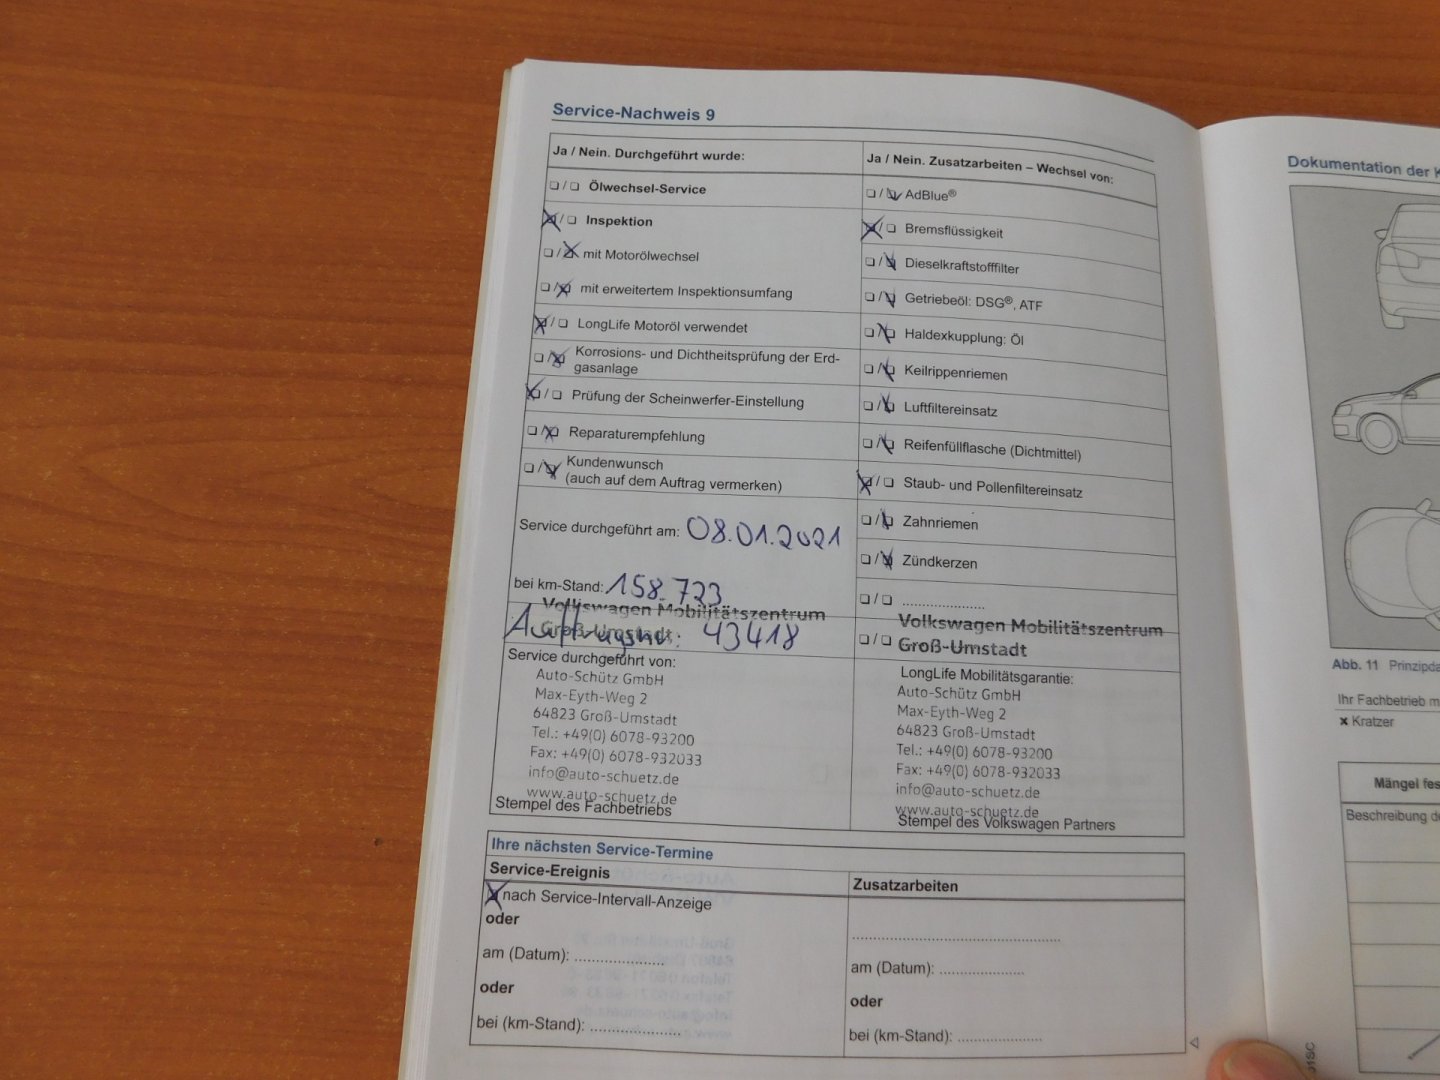 Service-Nachweis 9
Ja / Nein. Durchgeführt wurde:
❏ / ❏ Ölwechsel-Service
❏ / ❏ Inspektion
❏ / ❏ mit Motorölwechsel
❏ / ❏ mit erweitertem Inspektionsumfang
❏ / ❏ LongLife Motoröl verwendet
❏ / ❏ Korrosions- und Dichtheitsprüfung der Erd-
gasanlage
❏ / ❏ Prüfung der Scheinwerfer-Einstellung
❏ / ❏ Reparaturempfehlung
❏ / ❏ Kundenwunsch
(auch auf dem Auftrag vermerken)
Service durchgeführt am: 08.01.2021
bei km-Stand: 158.723
Volkswagen Mobilitätszentrum
Groß-Umstadt
Auftragsnr: 43418
Service durchgeführt von:
Auto-Schütz GmbH
Max-Eyth-Weg 2
64823 Groß-Umstadt
Tel.: +49(0) 6078-93200
Fax: +49(0) 6078-932033
info@auto-schuetz.de
www.auto-schuetz.de
Stempel des Fachbetriebs
Ja / Nein. Zusatzarbeiten – Wechsel von:
❏ / ❏ AdBlue®
❏ / ❏ Bremsflüssigkeit
❏ / ❏ Dieselkraftstofffilter
❏ / ❏ Getriebeöl: DSG®, ATF
❏ / ❏ Haldexkupplung: Öl
❏ / ❏ Keilrippenriemen
❏ / ❏ Luftfiltereinsatz
❏ / ❏ Reifenfüllflasche (Dichtmittel)
❏ / ❏ Staub- und Pollenfiltereinsatz
❏ / ❏ Zahnriemen
❏ / ❏ Zündkerzen
❏ / ❏ ......................
❏ / ❏
Volkswagen Mobilitätszentrum
Groß-Umstadt
LongLife Mobilitätsgarantie:
Auto-Schütz GmbH
Max-Eyth-Weg 2
64823 Groß-Umstadt
Tel.: +49(0) 6078-93200
Fax: +49(0) 6078-932033
info@auto-schuetz.de
www.auto-schuetz.de
Stempel des Volkswagen Partners
Ihre nächsten Service-Termine
Service-Ereignis
nach Service-Intervall-Anzeige
oder
am (Datum): ......................
oder
bei (km-Stand): ......................
Zusatzarbeiten
......................
am (Datum): ......................
oder
bei (km-Stand): ......................
Dokumentation der K
Abb. 11 Prinzipda
Ihr Fachbetrieb m
× Kratzer
Mängel fes
Beschreibung de